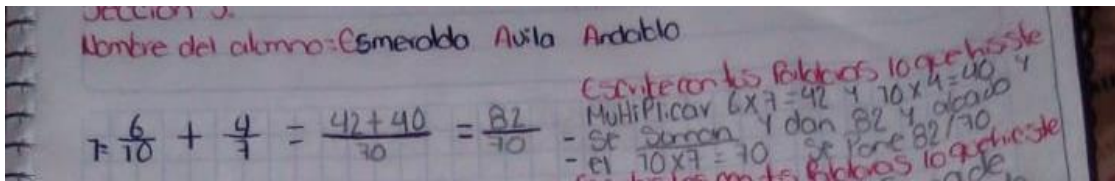 Sección 3.
Nombre del alumno: Esmeralda Avila Andablo
Escribe con tus Palabras lo que hisste
7= 6/10 + 4/7 = 42+40/70 = 82/70
MultiPlicar 6x7=42 y 10x4=40 y
- Se Suman y dan 82 y
- el 10x7=70 Se Pone 82/70